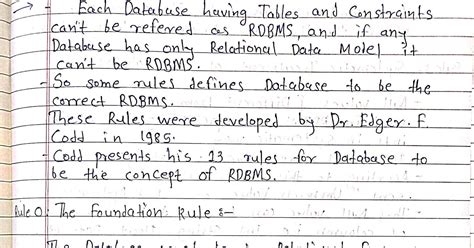 → Each Database having Tables and Constraints
can't be refered as RDBMS, and if any
Database has only Relational Data Model it
can't be RDBMS.
- So some rules defines Database to be the
correct RDBMS.
These Rules were developed by Dr. Edger. F.
Codd in 1985.
- Codd presents his 13 rules for Database to
be the concept of RDBMS.
Rule 0: The Foundation Rule :-